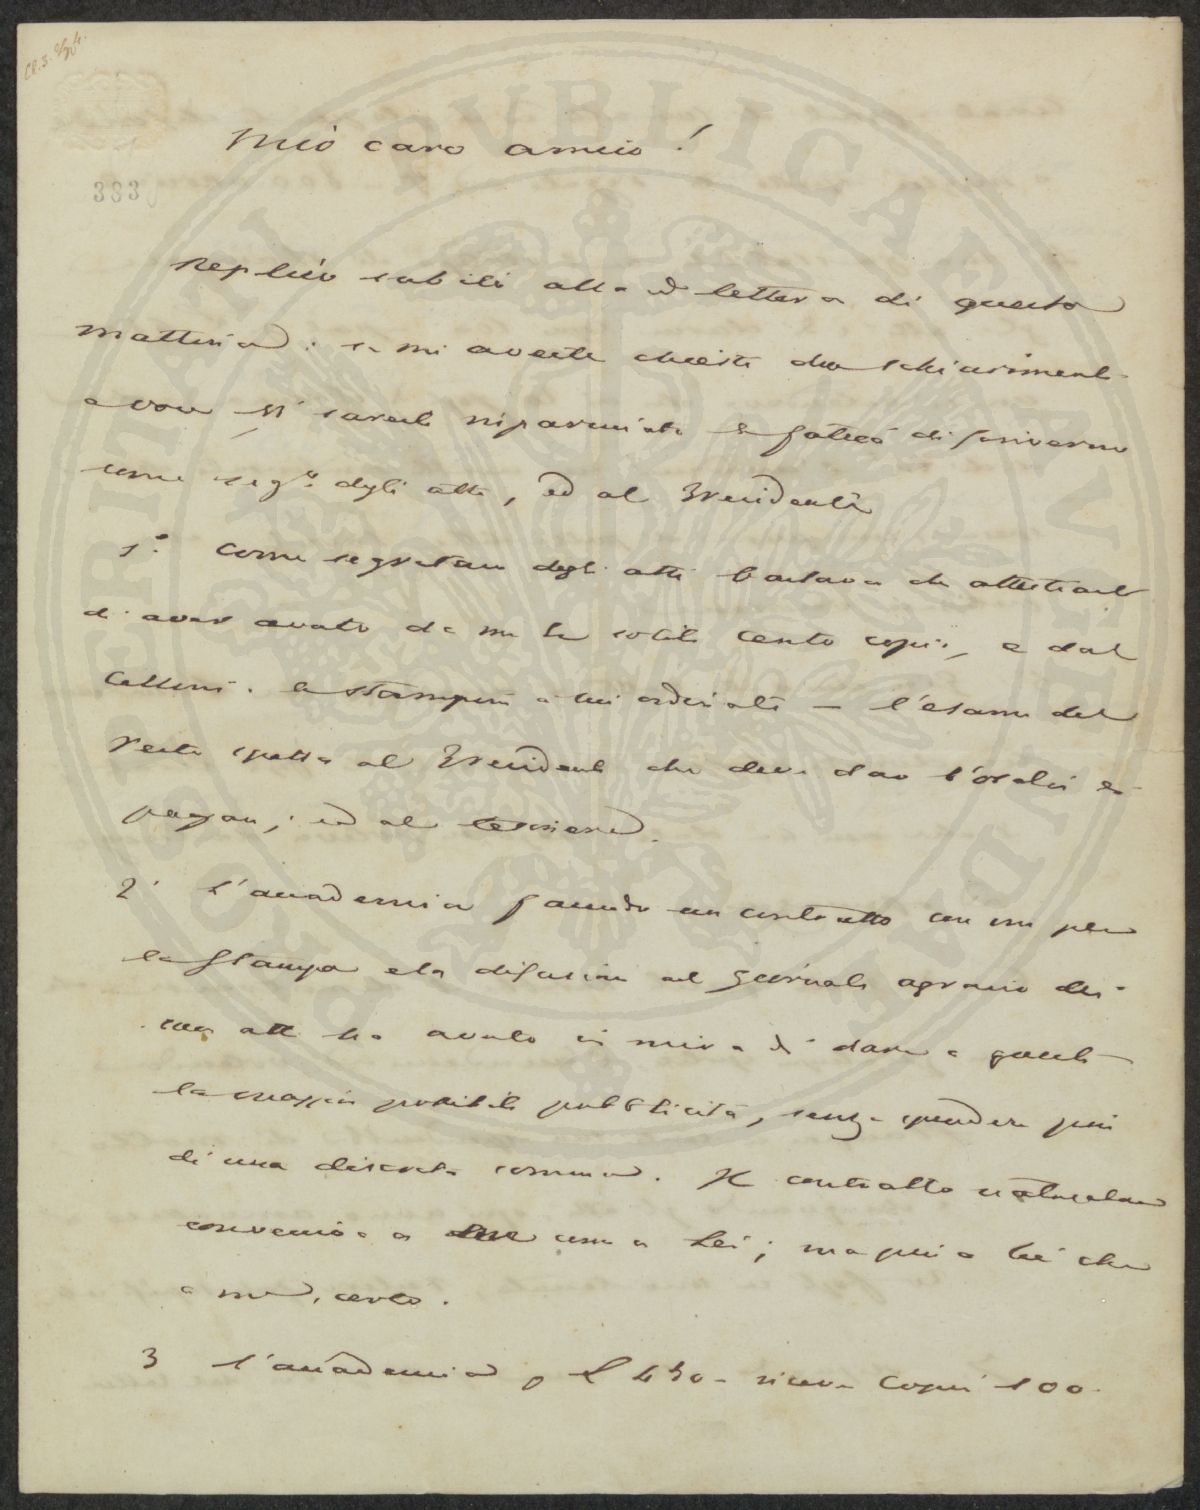 Mio caro amico!
383
Replico subito alla di lettera di questa
mattina: se mi aveste chiesto due schiarimenti
a voce vi sareste risparmiata la fatica di scrivermi
come seg.o degli atti, ed al Presidente
1.o Come segretario degli atti bastava che attestiate
di aver avuto da me le solite cento copie, e dal
Cellini le stamperie a lui ordinate — l'esame del
resto spetta al Presidente che deve dar l'ordine di
pagare; ed al tesoriere.
2.o L'accademia facendo un contratto con me per
la stampa e la difusione del giornale agrario dei
suoi atti ha avuto in mira di dare a questi
la maggior possibile pubblicità, senza spendere più
di una discreta somma. Il contratto naturalmente
conveniva a me come a Lei; ma più a Lei che
a me, certo.
3 L'accademia p L 450 - riceve Copie 100.
PROSPERITATI PVBLICAE AVGENDAE